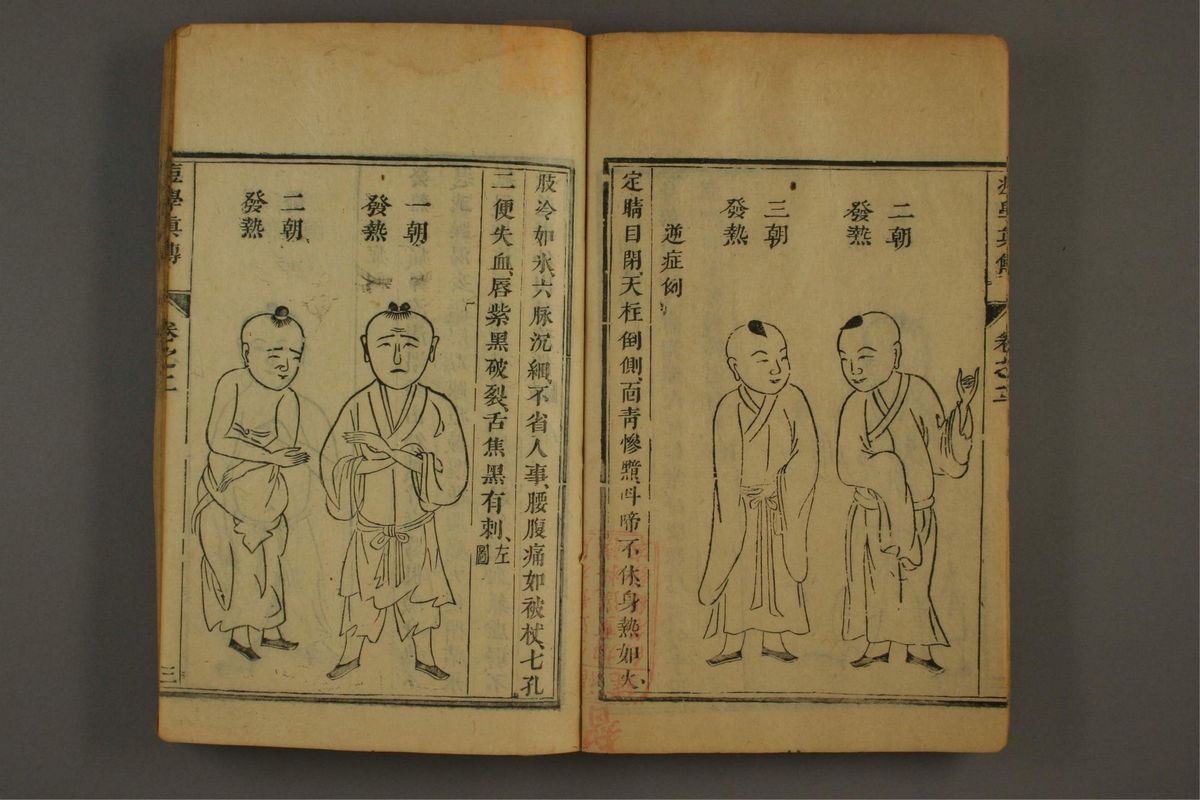 二朝
發熱
三朝
發熱
逆症例
定睛目閉、天柱倒側、面青慘黯、呌啼不休、身熱如火、
肢冷如氷、六脉沉細、不省人事、腰腹痛如被杖、七孔
二便失血、唇紫黑破裂、舌焦黑有刺、左圖
一朝
發熱
二朝
發熱
痘學真傳
卷之二
三